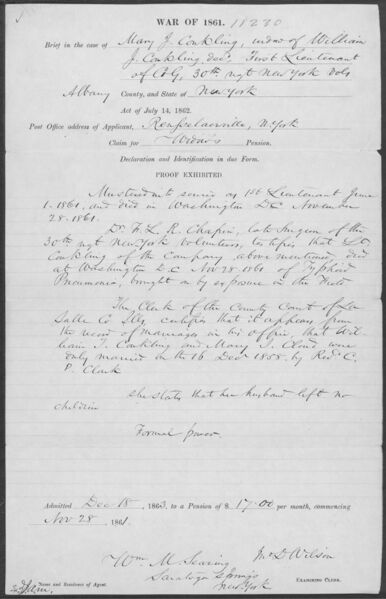 WAR OF 1861. 18220
Brief in the case of Mary J. Conkling, widow of William
J. Conkling, dec., First Lieutenant
of Co G, 30th regt New York Vols
Albany County, and State of New York
Act of July 14, 1862.
Post Office address of Applicant, Rensselaerville, N. York
Claim for Widow's Pension.
Declaration and Identification in due Form.
PROOF EXHIBITED
Mustered into service as 1st Lieutenant June
1. 1861, and died in Washington D.C. November
28. 1861.
Dr. F. L. R. Chapin, late Surgeon of the
30th regt New York Volunteers, testifies that Lt.
Conkling of the Company above mentioned, died
at Washington D.C. Nov 28. 1861 of Typhoid
Pneumonia, brought on by exposure in the field.
The Clerk of the County Court of La
Salle Co Ills, certifies that it appears from
the record of marriages in his office that Wil-
liam J. Conkling and Mary J. Cloud were
duly married on the 16 Decr 1858. by Revd C.
P. Clark
She states that her husband left no
children
Formal proof.
Admitted Dec 18, 1863, to a Pension of $ 17.00 per month, commencing
Nov 28 1861.
Wm. M. Searing
Saratoga Springs
New York
Jno D Wilson
Name and Residence of Agent.
EXAMINING CLERK.